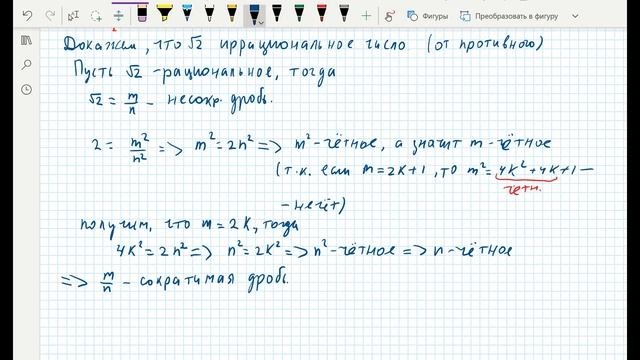 Фигуры Преобразовать в фигуру
Докажем, что √2 иррациональное число (от противного)
Пусть √2 - рациональное, тогда
√2 = m/n - несокр. дробь.
2 = m²/n² => m² = 2n² => m² - чётное, а значит m - чётное
(т.к. если m = 2k+1, то m² = 4k² + 4k + 1 -
чётн.
- нечёт)
получим, что m = 2k, тогда
4k² = 2n² => n² = 2k² => n² - чётное => n - чётное
=> m/n - сократимая дробь.